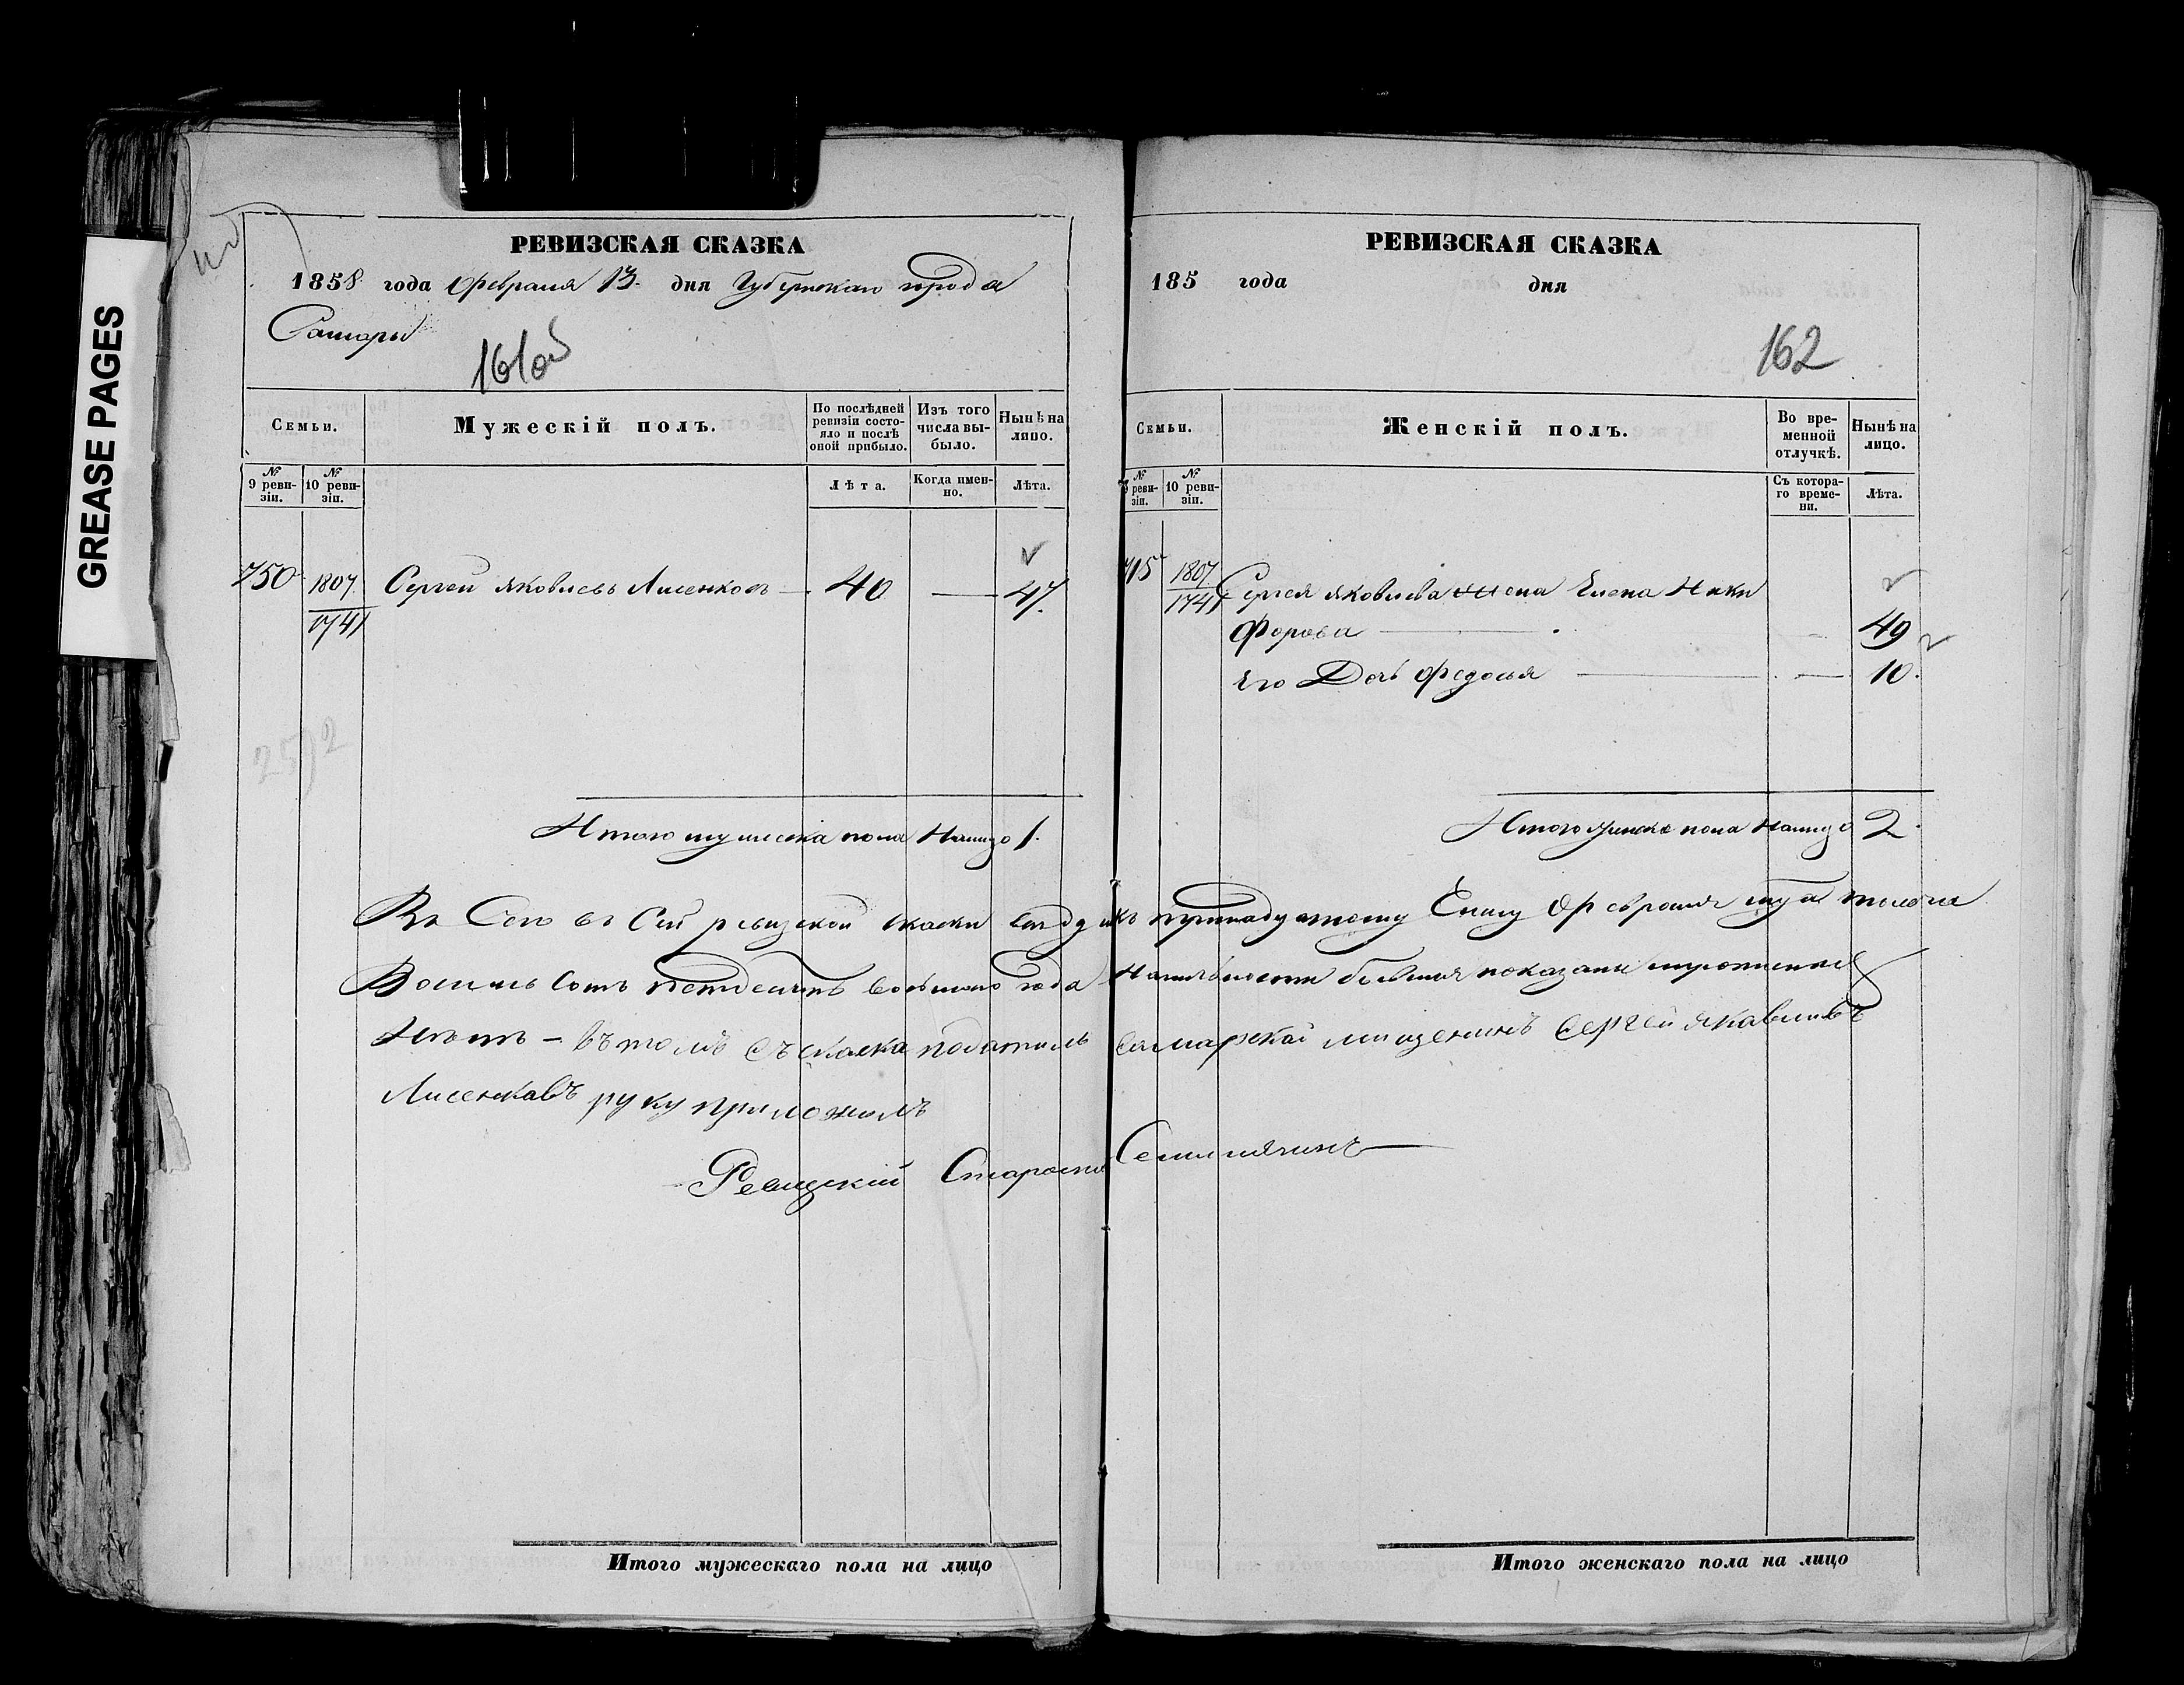 GREASE PAGES
РЕВИЗСКАЯ СКАЗКА
1858 года Февраля 13 дня Губернскаго города
Самары
161об
Семьи.
Мужескій полъ.
По послѣдней ревизіи состояло и послѣ оной прибыло.
Изъ того числа выбыло.
Нынѣ на лицо.
№ 9 ревизіи.
№ 10 ревизіи.
Лѣта.
Когда именно.
Лѣта.
750 1807 1741 Сергей Яковлевъ Лисенковъ — 40 — 47
2592
Итого мужеска пола Налицо 1.
РЕВИЗСКАЯ СКАЗКА
185 года дня
162
Семьи.
Женскій полъ.
Во временной отлучкѣ.
Нынѣ на лицо.
№ ревизіи.
№ 10 ревизіи.
Съ котораго времени.
Лѣта.
715 1807 1741 Сергея Яковлева жена Елена Ники
форова — 49
Его Дочь Федосья — 10.
Итого женска пола Налицо 2
Въ Сей ревизской скаски Февраля
Восемь Сотъ восьмаго года показаны
Нѣтъ — Въ томъ съ скаска податиль самарской мищенинъ Сергей Якавливъ
Лисенкавъ руку приложилъ
Ревизский Староста
Итого мужескаго пола на лицо
Итого женскаго пола на лицо